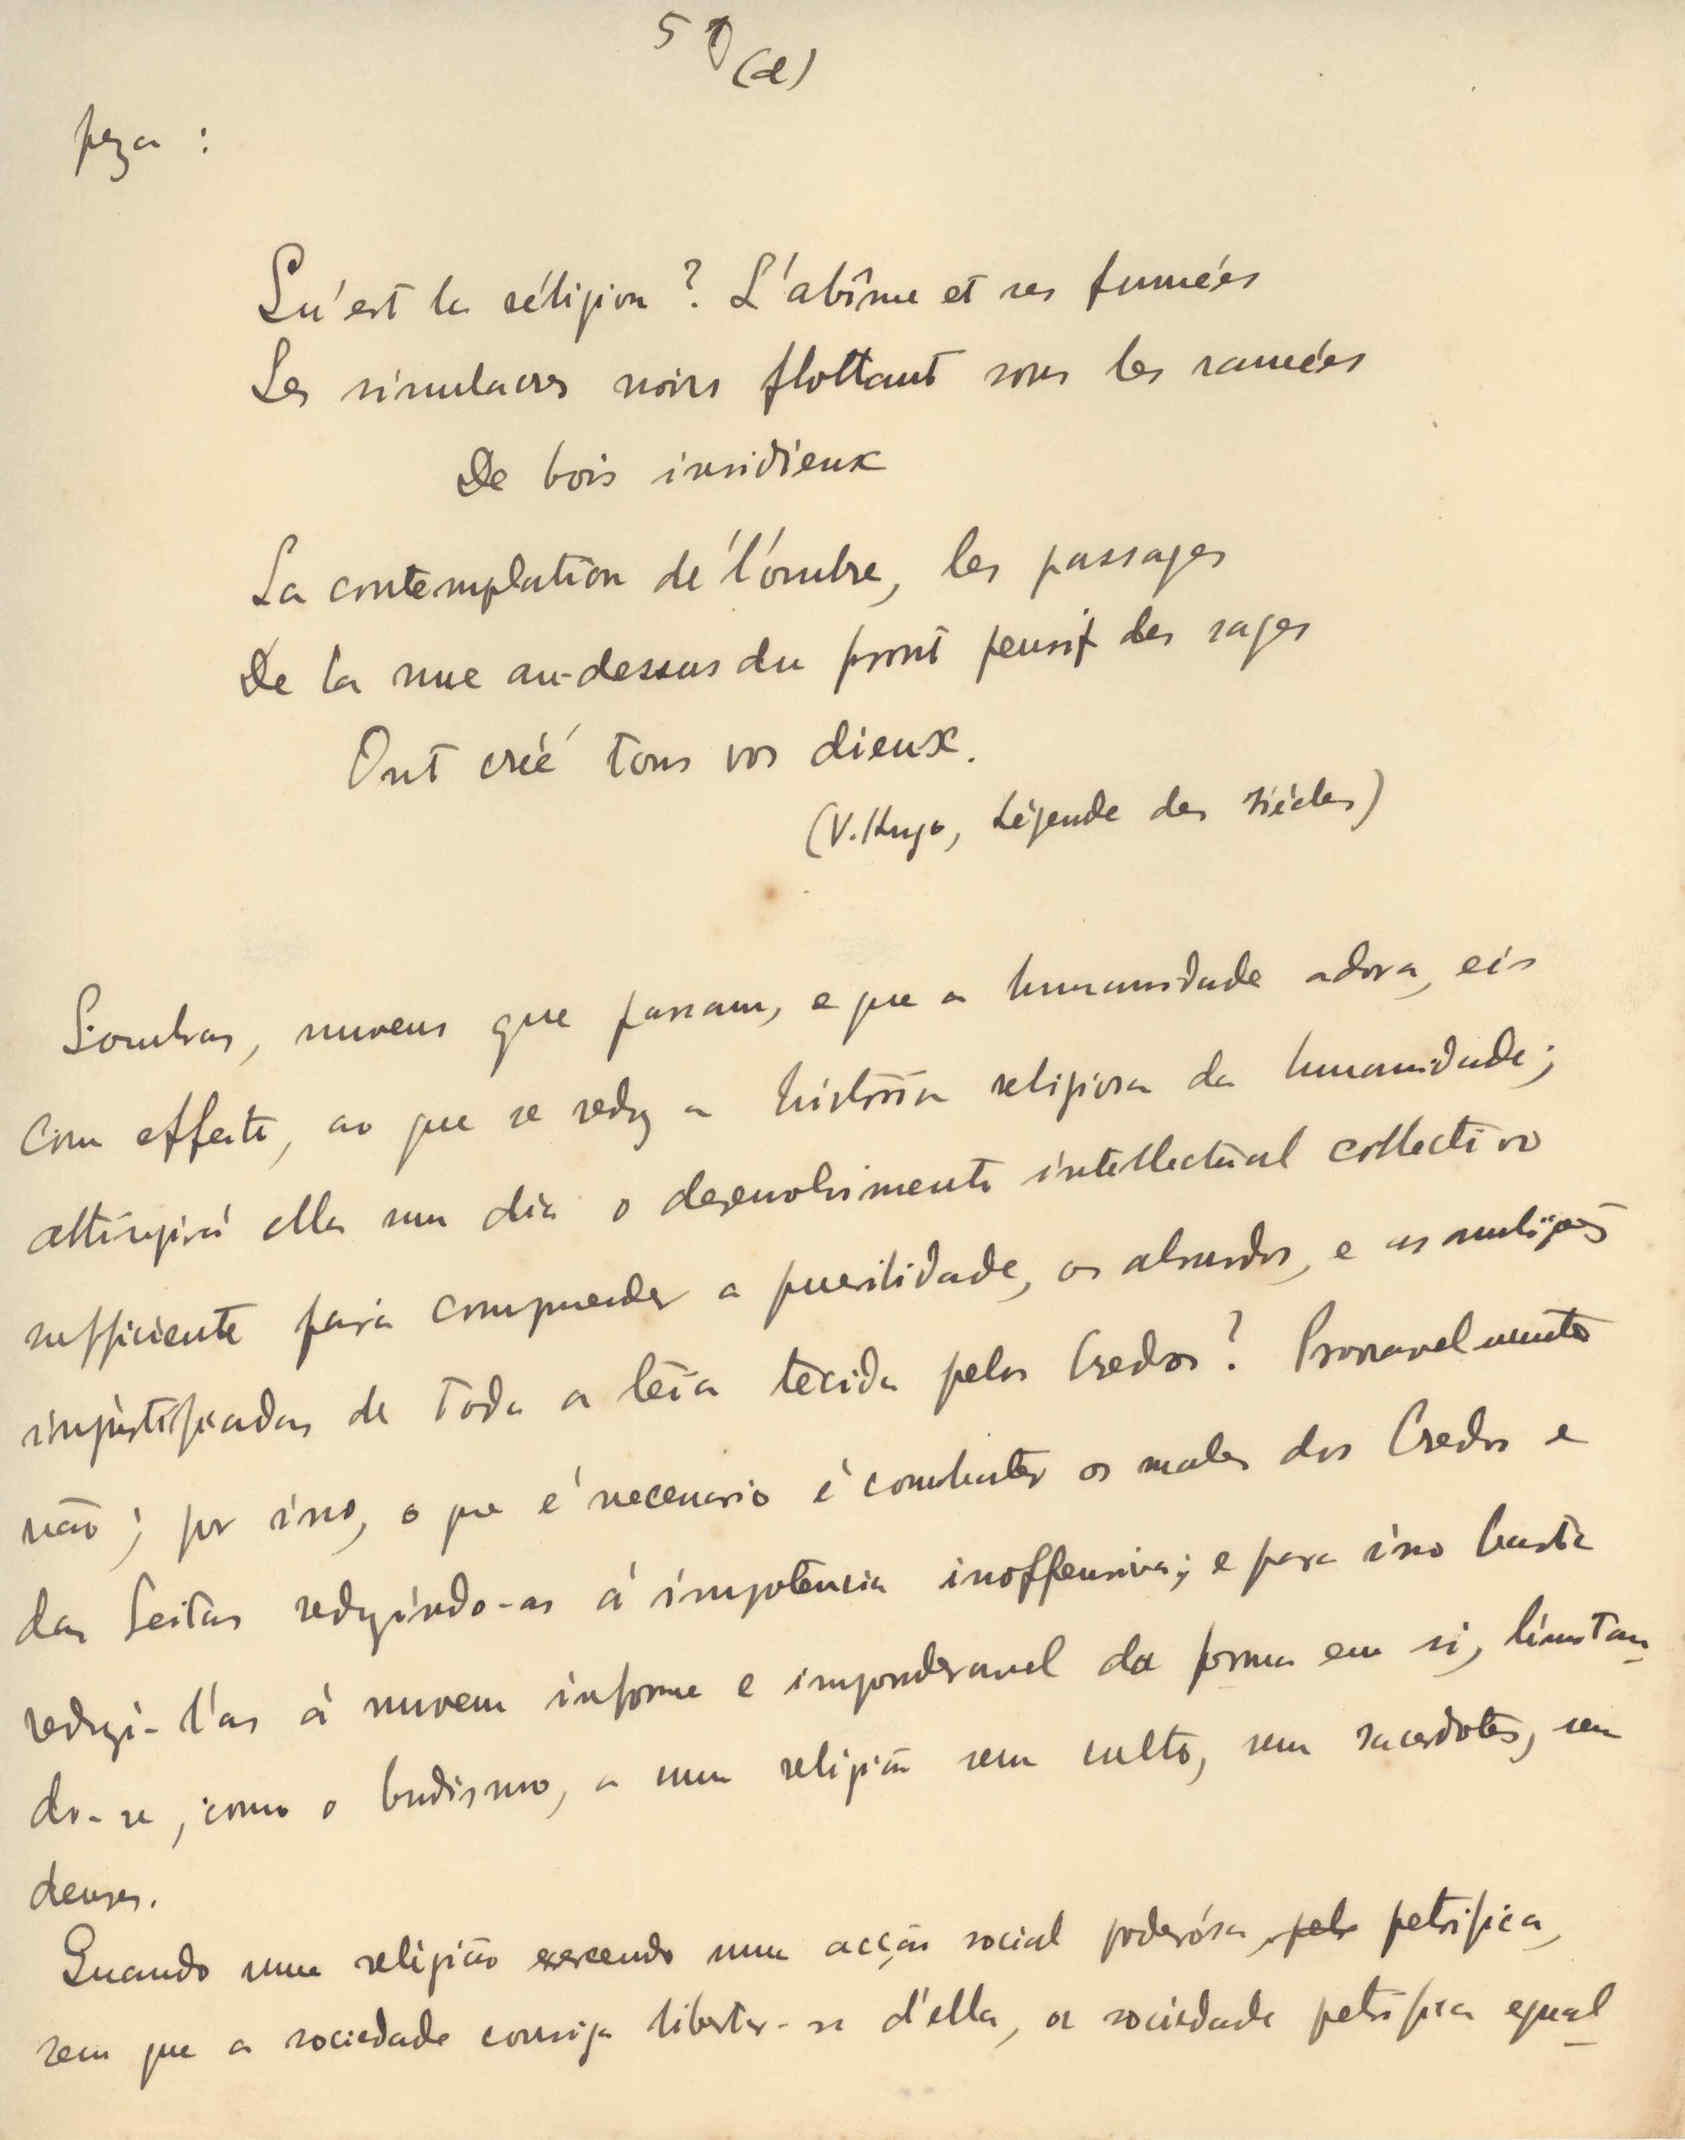 50 (d)
peza :
Qu'est la réligion ? L'abîme et ses fumées
Les simulacres noirs flottant sous les ramées
De bois insidieux
La contemplation de l'ombre, les passages
De la nue au-dessus du front pensif des sages
Ont créé tous vos dieux.
(V. Hugo, Légende des siécles)
Sombras, nuvens que passam, e que a humanidade adora, eis
com effeito, ao que se reduz a história religiosa da humanidade;
attingirá ella um dia o desenvolvimento intellectual collectivo
sufficiente para comprender a puerilidade, os absurdos, e as
injustificadas de toda a teia tecida pelos Credos ? Provavelmente
não ; por isso, o que é necessario é combater os males dos Credos e
das Seitas reduzindo-as á impotencia inoffensiva; e para isso basta
reduzi-l'as á nuvem informe e imponderavel da forma em si, limitan-
do-se, como o budismo, a uma religião sem culto, sem sacerdotes, sem
deuses.
Quando uma religião exercendo uma acção social poderósa, pela petrifica,
sem que a sociedade consiga libertar-se d'ella, a sociedade petrifica egual-